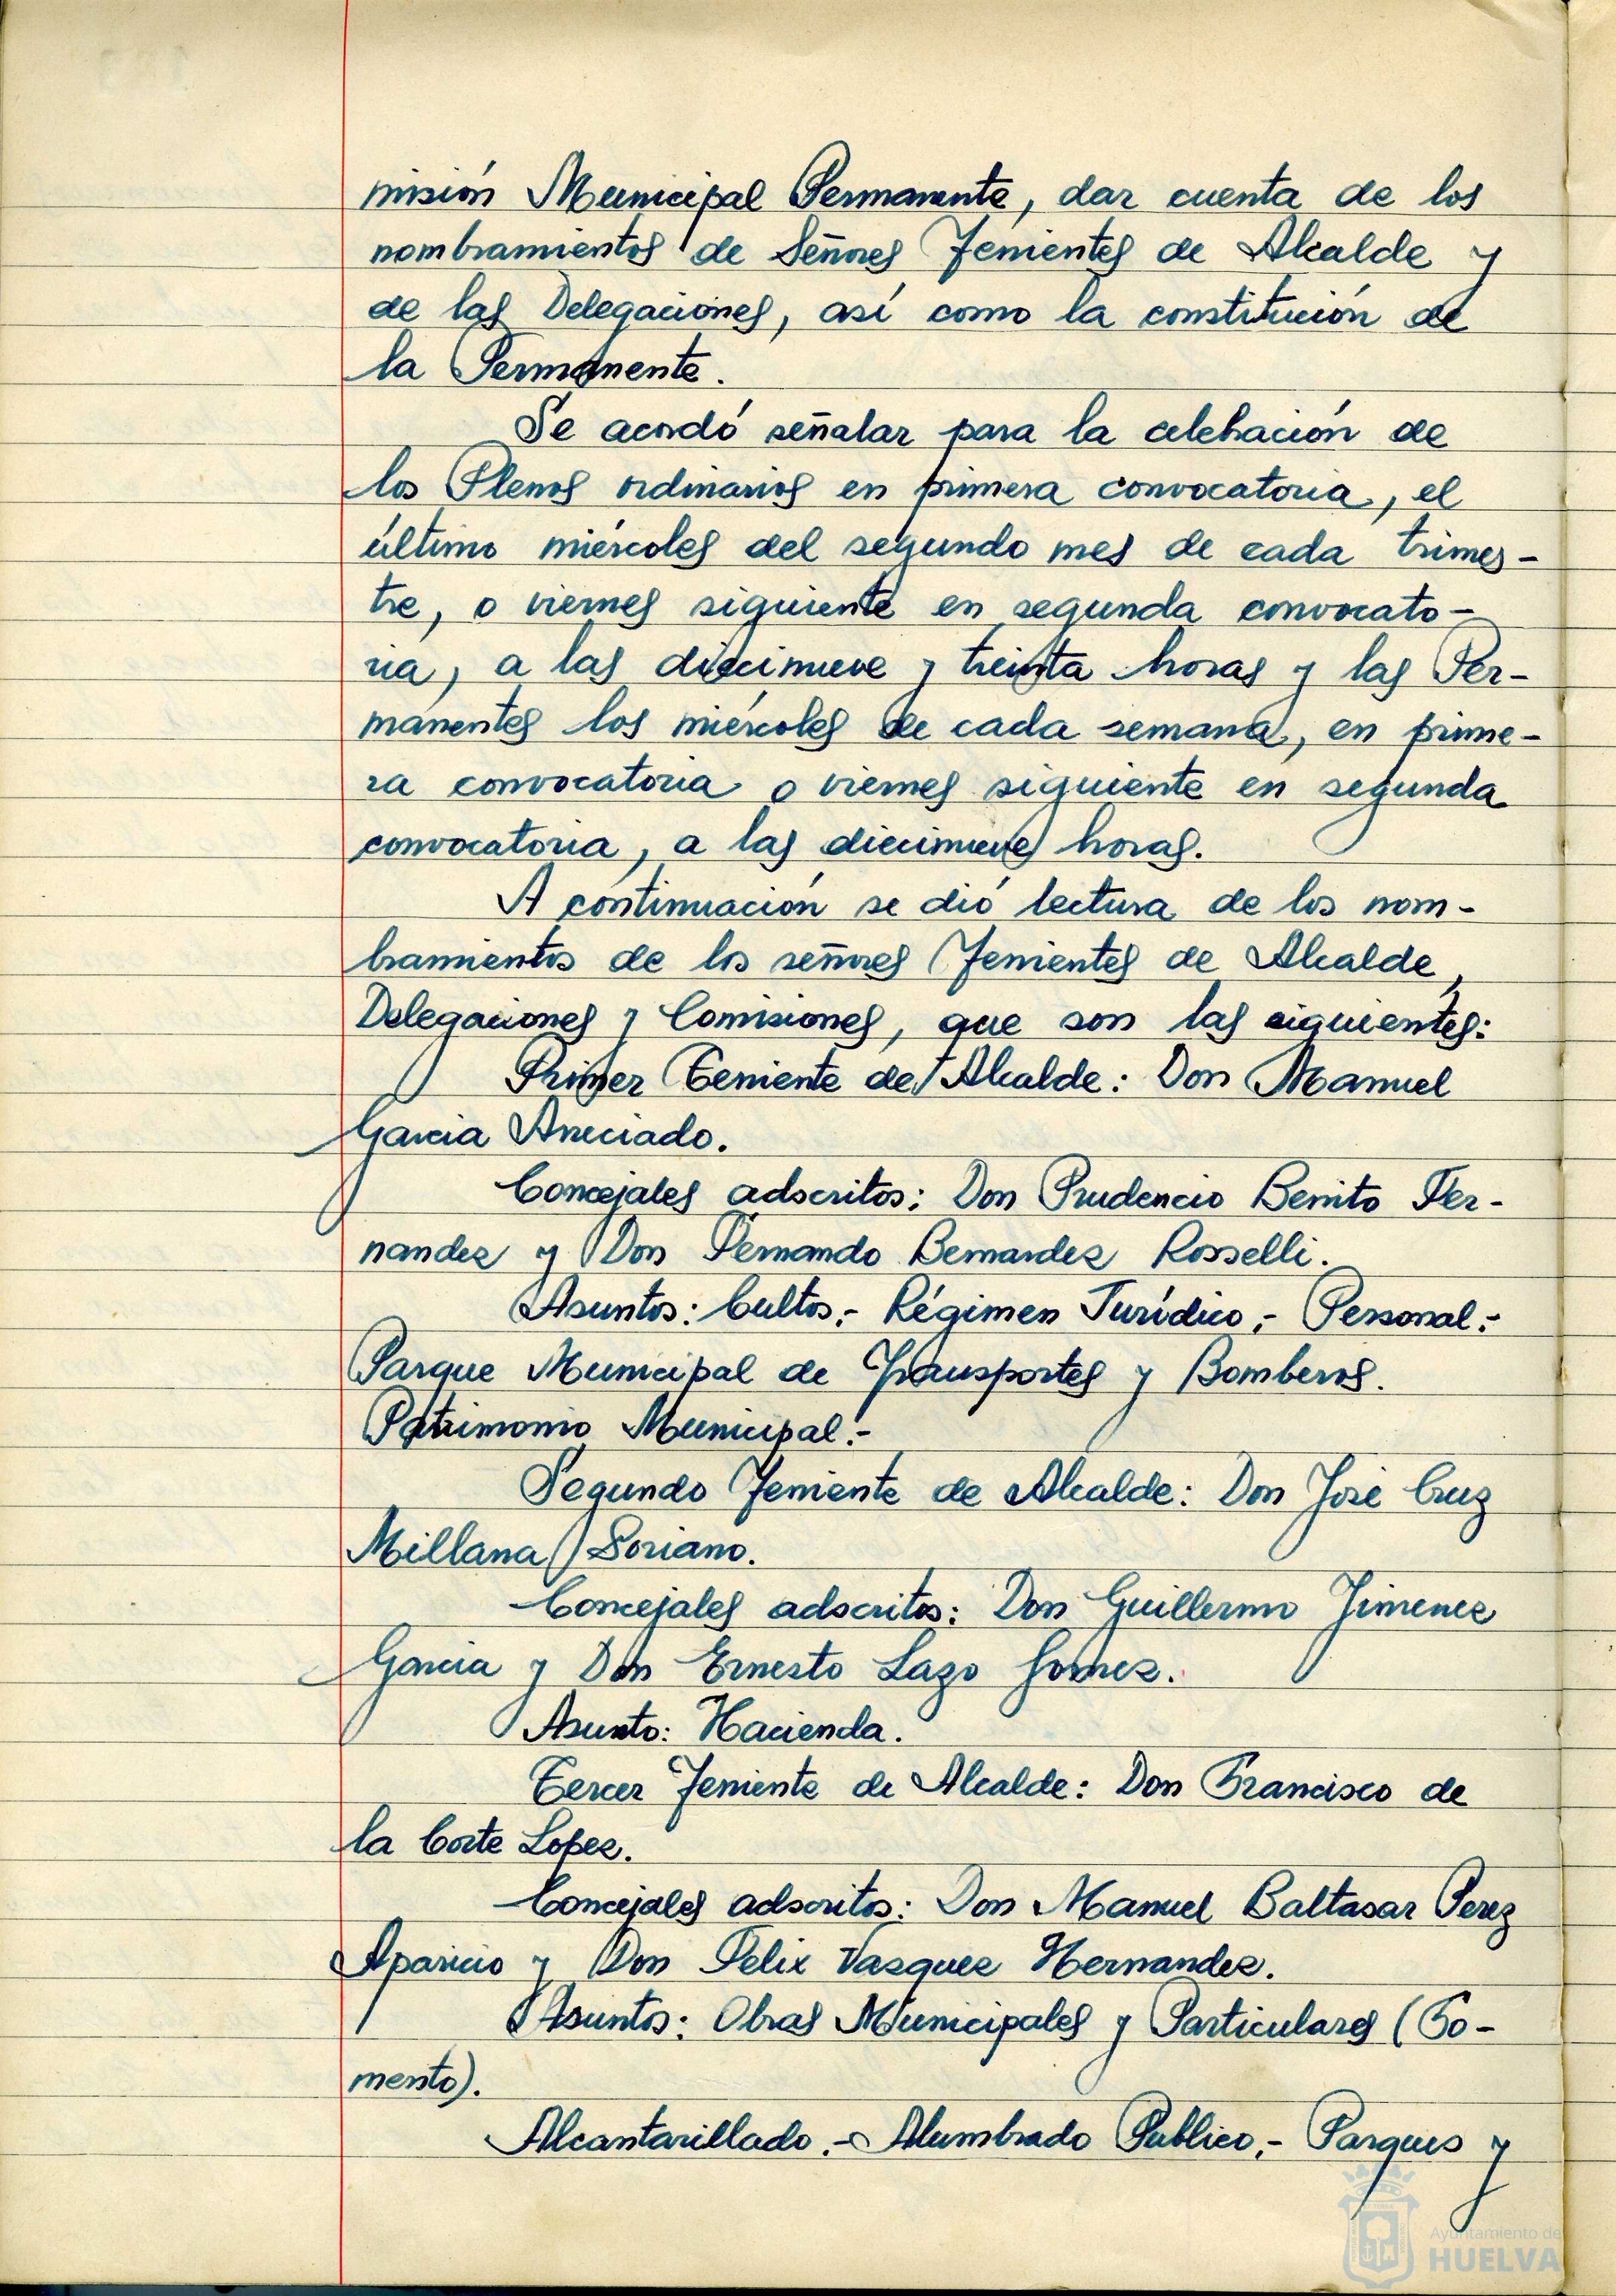 misión Municipal Permanente, dar cuenta de los
nombramientos de Señores Tenientes de Alcalde y
de las Delegaciones, así como la constitución de
la Permanente.
Se acordó señalar para la celebración de
los Plenos ordinarios en primera convocatoria, el
último miércoles del segundo mes de cada trimes-
tre, o viernes siguiente en segunda convocato-
ria, a las diecinueve y treinta horas y las Per-
manentes los miércoles de cada semana, en prime-
ra convocatoria o viernes siguiente en segunda
convocatoria, a las diecinueve horas.
A continuación se dió lectura de los nom-
bramientos de los señores Tenientes de Alcalde,
Delegaciones y Comisiones, que son las siguientes:
Primer Teniente de Alcalde: Don Manuel
Garcia Arreciado.
Concejales adscritos: Don Prudencio Benito Fer-
nandez y Don Fernando Bernardez Rosselli.
Asuntos: Cultos.- Régimen Jurídico.- Personal.-
Parque Municipal de Transportes y Bomberos.
Patrimonio Municipal.-
Segundo Teniente de Alcalde: Don José Cruz
Millana Soriano.
Concejales adscritos: Don Guillermo Jimenez
Garcia y Don Ernesto Lazo Gomez.
Asunto: Hacienda.
Tercer Teniente de Alcalde: Don Francisco de
la Corte Lopez.
Concejales adscritos: Don Manuel Baltasar Perez
Aparicio y Don Felix Vazquez Hernandez.
Asuntos: Obras Municipales y Particulares (Fo-
mento).
Alcantarillado.- Alumbrado Publico.- Parques y
Ayuntamiento de
HUELVA